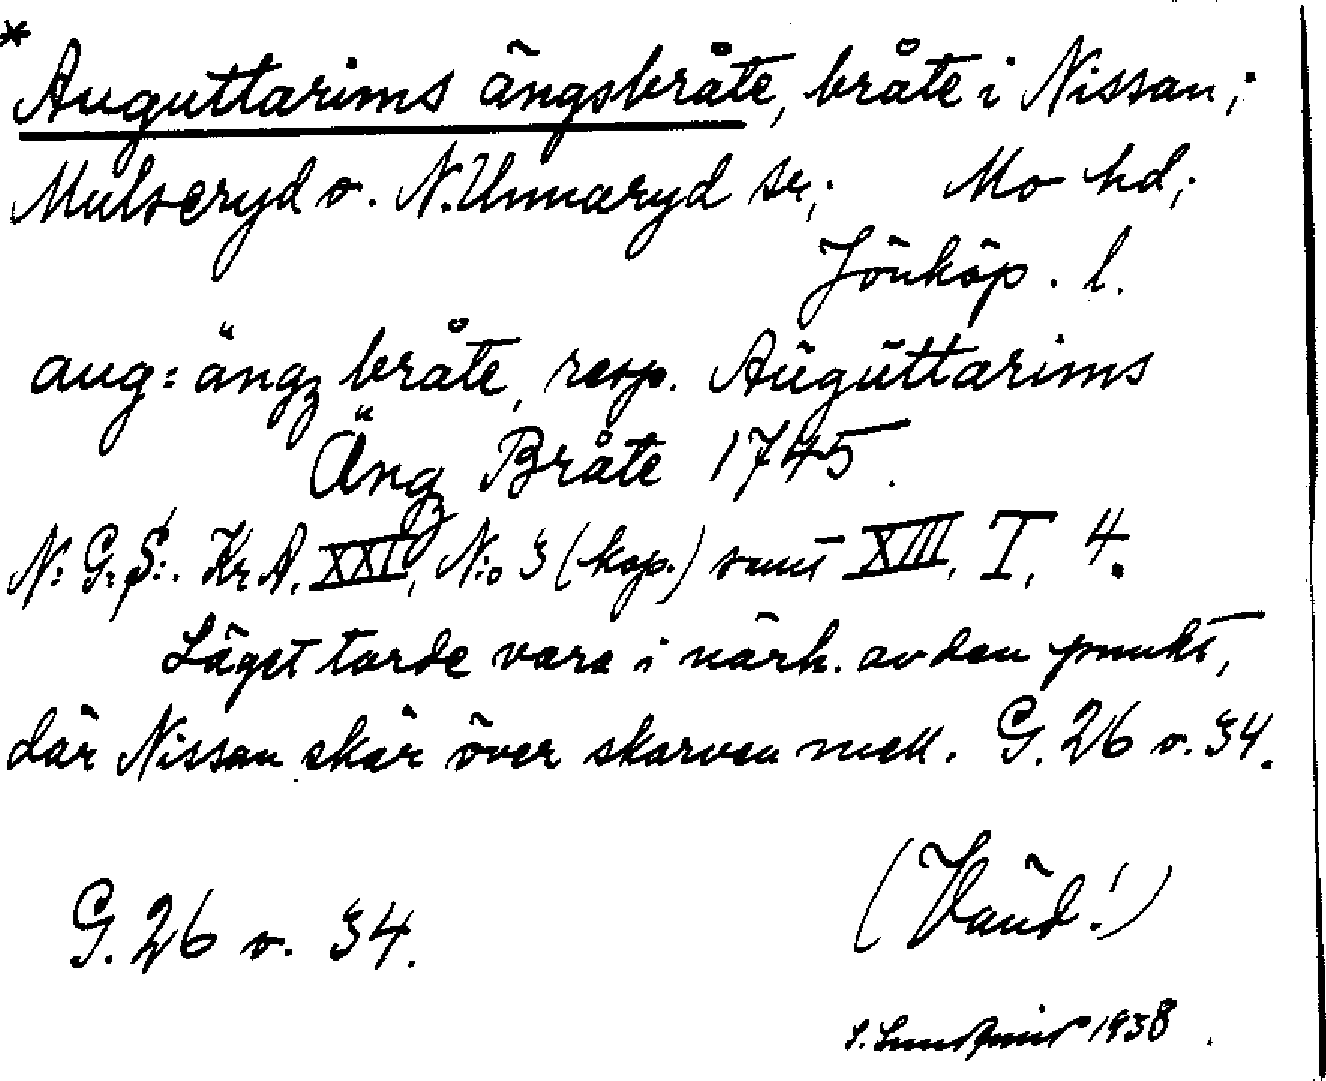 * Auguttarims ängsbråte, bråte i Nissan;
Mulseryd o. N. Unnaryd sr; Mo hd;
Jönköp. l.
aug: ängz bråte, resp. Auguttarims
Äng Bråte 1745.
N: G: S:. Kr A. XXI, N:o 3 (kop.) samt XIII, T, 4.
Läget torde vara i närh. av den punkt,
där Nissan skär över skarven mell. G. 26 o. 34.
G. 26 o. 34.
(Vänd!)
S. Lundqvist 1938.